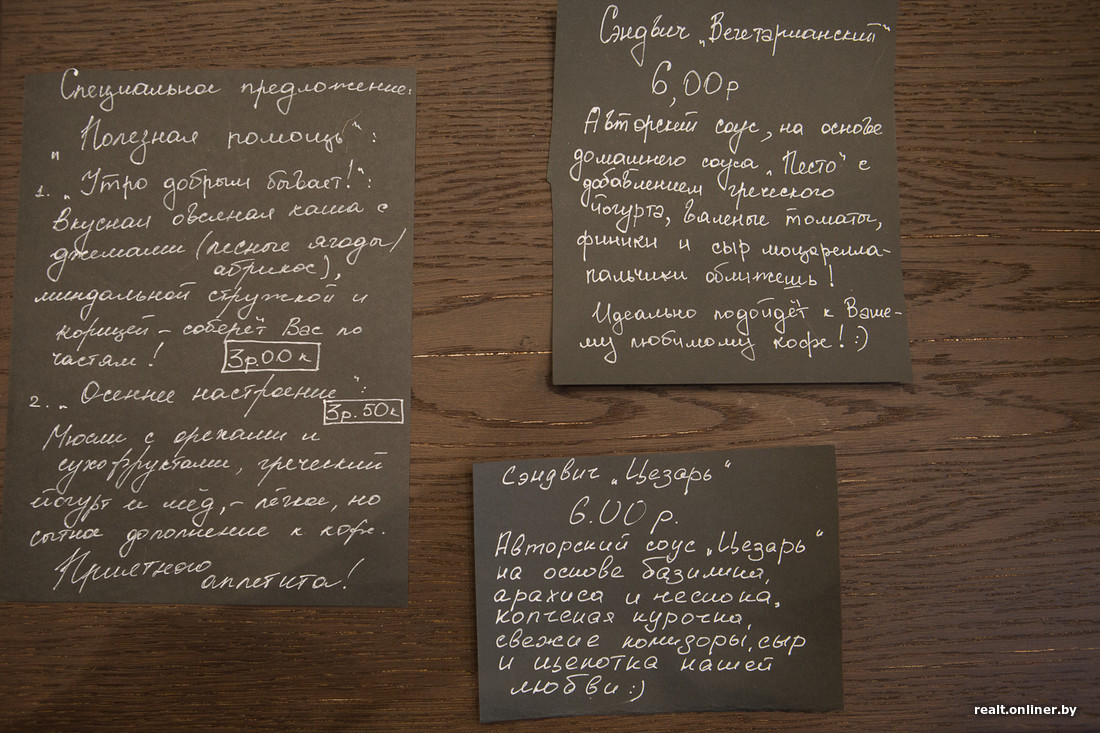 Специальное предложение:
„Полезная помощь“:
1. „Утро добрым бывает!“:
Вкусная овсяная каша с
джемами (лесные ягоды/
абрикос),
миндальной стружкой и
корицей – соберёт Вас по
частям!
3р.00к
2. „Осеннее настроение“:
3р.50к
Мюсли с орехами и
сухофруктами, греческий
йогурт и мёд, – лёгкое, но
сытное дополнение к кофе.
Приятного
аппетита!
Сэндвич „Вегетарианский“
6,00р
Авторский соус, на основе
домашнего соуса „Песто“ с
добавлением греческого
йогурта, вяленые томаты,
финики и сыр моцарелла-
пальчики оближешь!
Идеально подойдёт к Ваше-
му любимому кофе! :)
Сэндвич „Цезарь“
6.00р.
Авторский соус „Цезарь“
на основе базилика,
арахиса и чеснока,
копчёная курочка,
свежие помидоры, сыр
и щепотка нашей
любви :)
realt.onliner.by